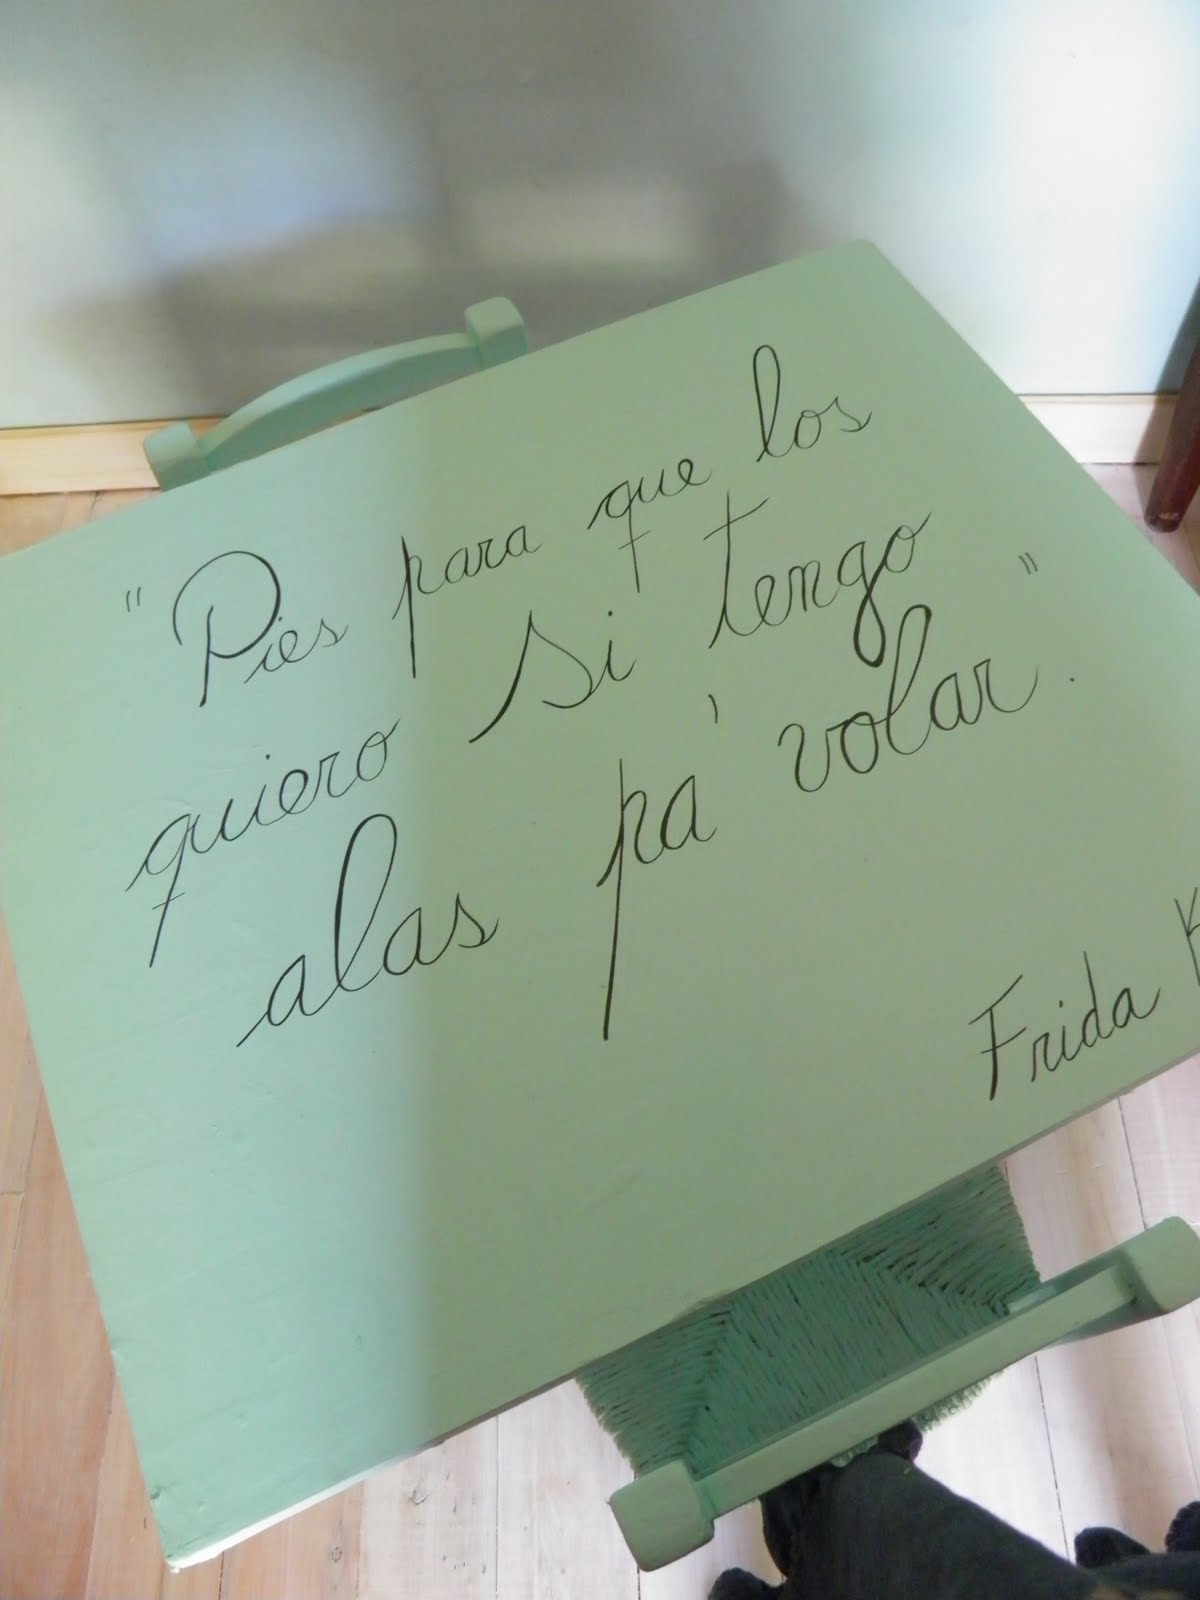 "Pies para que los
quiero si tengo
alas pa' volar."
Frida K